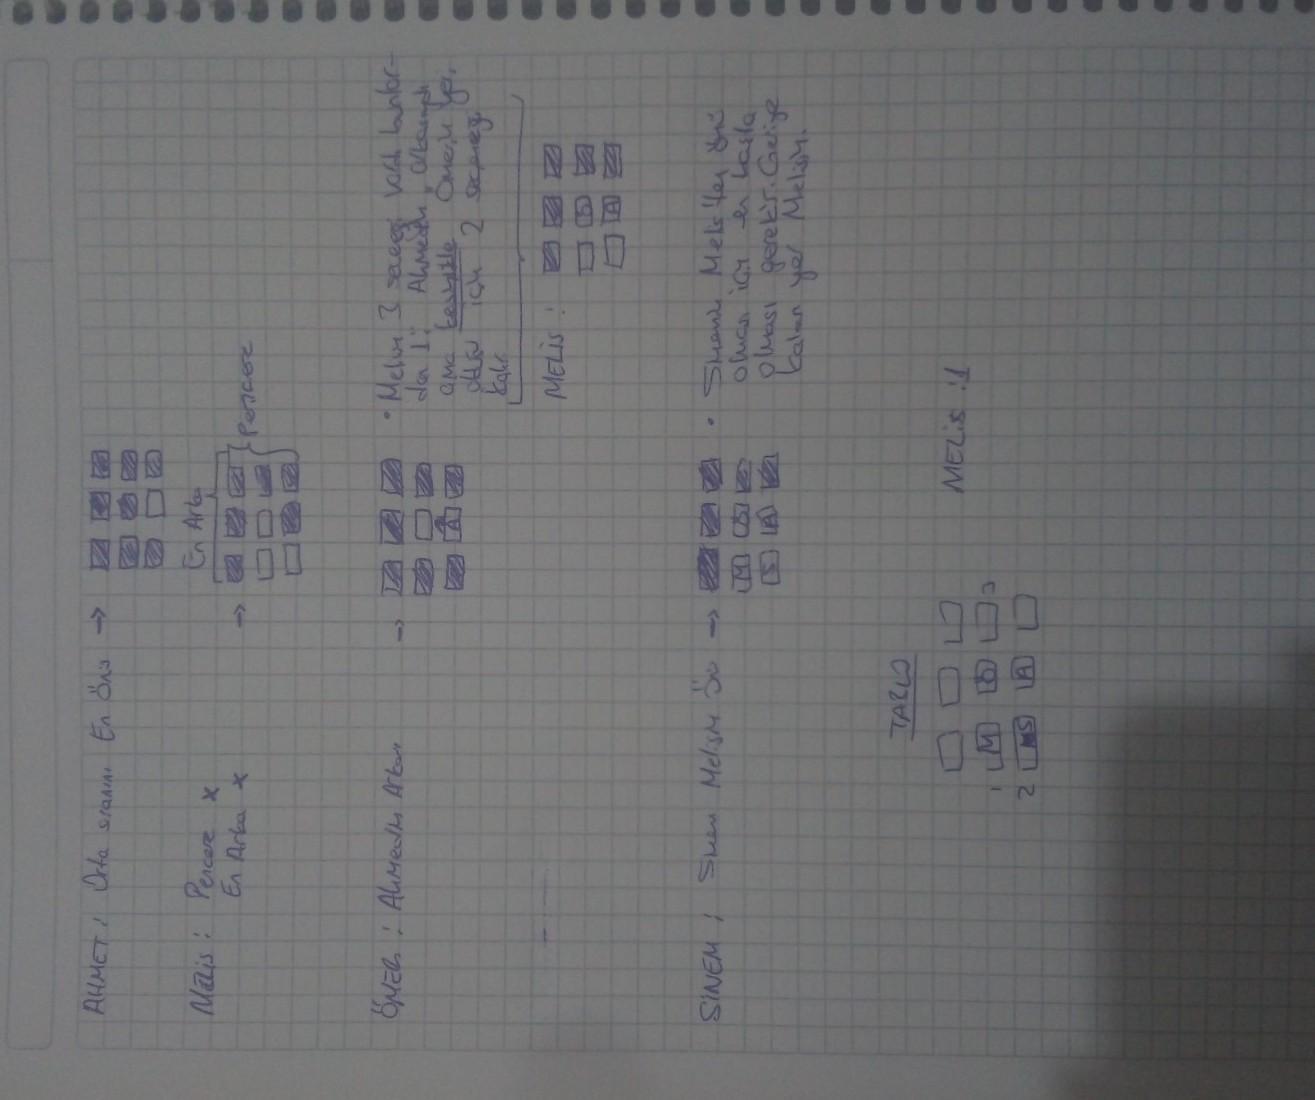 AHMET : Orta sıranın En Önü →
Melis : Pencere x
En Arka x
→
En Arka
Pencere
ÖMER : Ahmedin Arkası →
A
• Melisin 3 seceneği vardı bunlar-
dan 1'i Ahmedin arkasıydı
ama kesinlikle Ömerin yeri
olduğu için 2 seçeneği
kalır.
MELİS :
Ö
A
SİNEM : Sinem Melisin Önü →
M Ö
S A
• Sinemin Melis'in önü
olması için en başta
olması gerekir. Geriye
kalan yer Melisin.
TABLO
1 M Ö 3
2 S A
MELİS : 1